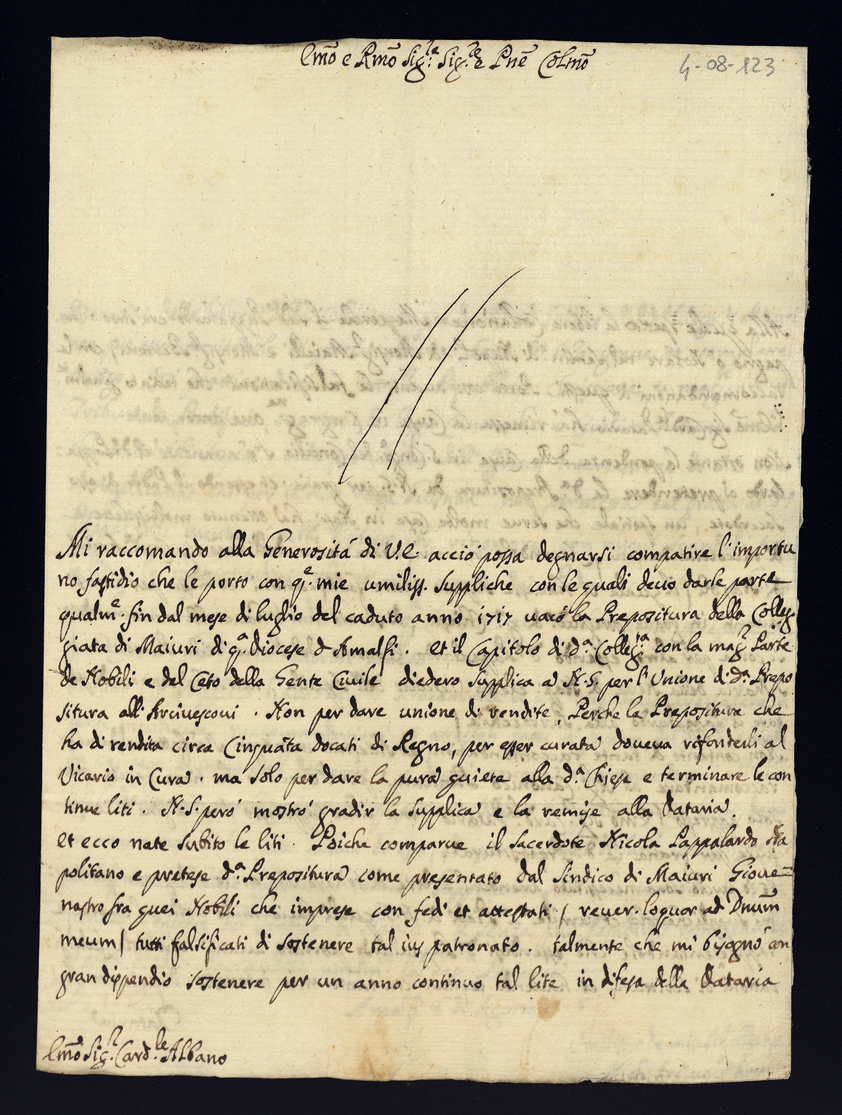 Emõ e Rmõ Sig.re Sig.re e Pne Colmõ
4-08-123
Mi raccomando alla Generosità di V.E. acciò possa degnarsi compatire l'importu
no fastidio che le porto con q.e mie umiliss. suppliche con le quali devo darle parte
qualm.e fin dal mese di luglio del caduto anno 1717 vacò la Prepositura della Colleg-
giata di Maiuri di q.a diocese d'Amalfi. et il Capitolo di d.a Colleg.ta con la mag.r Parte
de Nobili e del Ceto della Gente Civile diedero supplica a N.S. per l'Unione di d.a Prepo
situra all'Arcivescovi. Non per dare unione di rendite, Perche la Prepositura che
ha di rendita circa Cinquãta docati di Regno, per esser curata doveva rifonderli al
Vicario in Cura. ma solo per dare la pura quiete alla d.a Chiesa e terminare le con
tinue liti. N.S. però mostrò gradir la supplica e la remise alla Dataria.
et ecco nate subito le liti. Poiche comparve il sacerdote Nicola Pappalardo Na
politano e pretese d.a Prepositura come presentato dal Sindico di Maiuri Giove=
nastro fra quei Nobili che imprese con fedi et attestati / rever. loquor ad Dnũm
meum / tutti falsificati di sostenere tal ius patronato. talmente che mi bisognò con
gran dispendio sostenere per un anno continuo tal lite in difesa della Dataria
Emõ Sig.r Card.le Albano